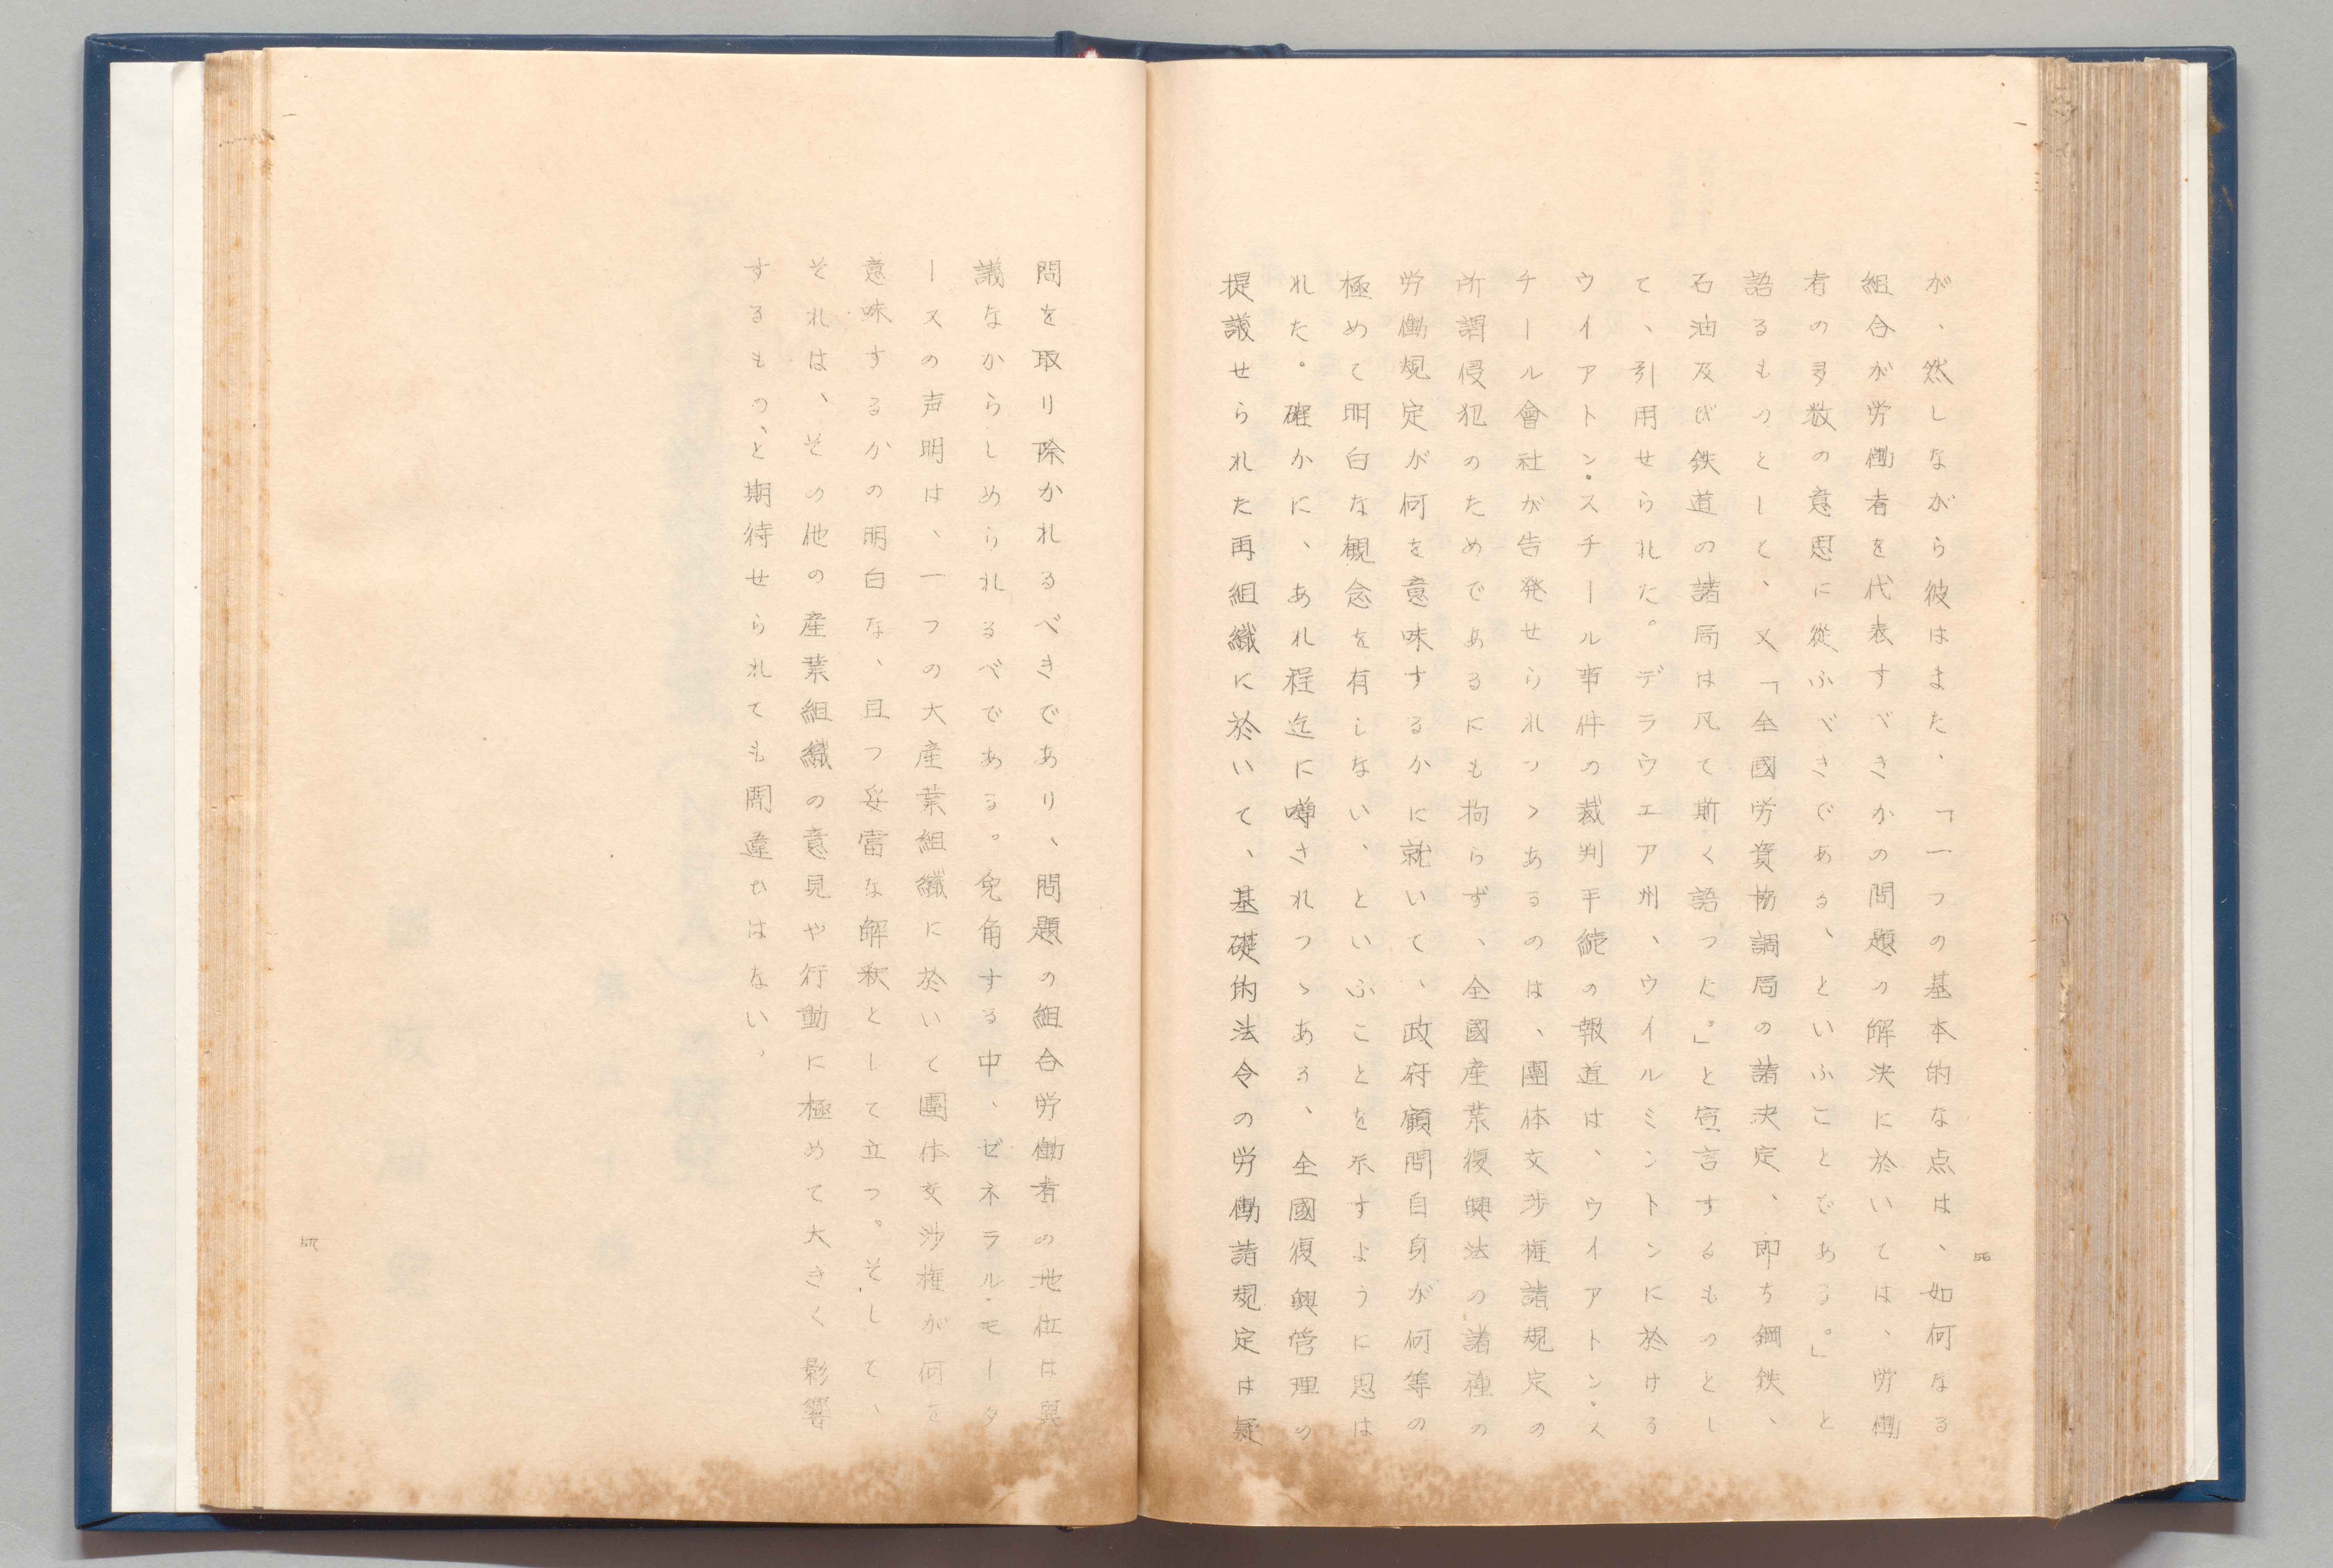 が、然しながら彼はまた、「一つの基本的な点は、如何なる
組合が労働者を代表すべきかの問題の解決に於いては、労働
者の多数の意思に從ふべきである、といふことである。」と
語るものとして、又「全國労資協調局の諸決定、即ち鋼鉄、
石油及び鉄道の諸局は凡て斯く語つた。」と宣言するものとし
て、引用せられた。デラウエア州、ウイルミントンに於ける
ウイアトン・スチール事件の裁判手続の報道は、ウイアトン・ス
チール會社が告発せられつゝあるのは、團体交渉権諸規定の
所謂侵犯のためであるにも拘らず、全國産業復興法の諸種の
労働規定が何を意味するかに就いて、政府顧問自身が何等の
極めて明白な観念を有しない、といふことを示すように思は
れた。確かに、あれ程迄に噂されつゝある、全國復興管理の
提議せられた再組織に於いて、基礎的法令の労働諸規定は疑
問を取り除かれるべきであり、問題の組合労働者の地位は異
議なからしめられるべである。兔角する中、ゼネラル・モータ
ースの声明は、一つの大産業組織に於いて團体交渉権が何を
意味するかの明白な、且つ妥當な解釈として立つ。そして、
それは、その他の産業組織の意見や行動に極めて大きく影響
するもの、と期待せられても間違ひはない。
56
57